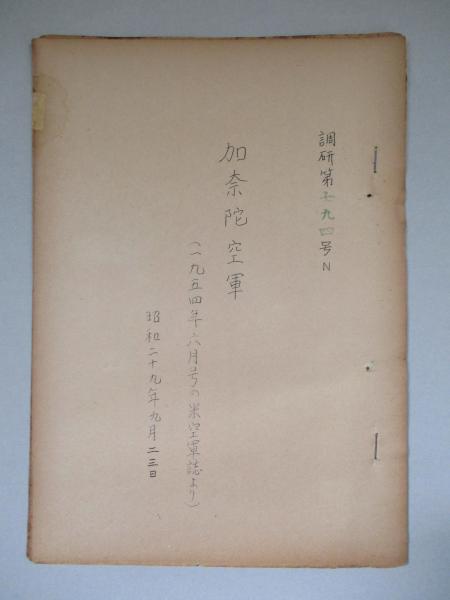 調研第七九四号N
加奈陀空軍
(一九五四年六月号の米空軍誌より)
昭和二十九年九月二三日